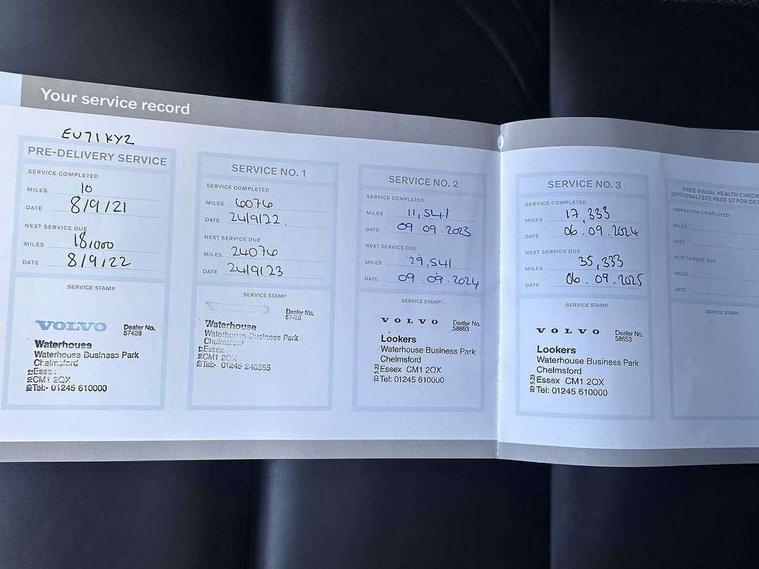 Your service record
EU71KYZ
PRE-DELIVERY SERVICE
SERVICE COMPLETED
MILES 10
DATE 8/9/21
NEXT SERVICE DUE
MILES 18,000
DATE 8/9/22
SERVICE STAMP
VOLVO Dealer No.
57428
Waterhouse
Waterhouse Business Park
Chelmsford
Essex
CM1 2QX
Tel:- 01245 610000
SERVICE NO. 1
SERVICE COMPLETED
MILES 6076
DATE 24/9/22
NEXT SERVICE DUE
MILES 24076
DATE 24/9/23
SERVICE STAMP
Dealer No.
57428
Waterhouse
Waterhouse Business Park
Chelmsford
Essex
CM1 2QX
Tel:- 01245
SERVICE NO. 2
SERVICE COMPLETED
MILES 11,541
DATE 09.09.2023
NEXT SERVICE DUE
MILES 29,541
DATE 09.09.2024
SERVICE STAMP
VOLVO Dealer No.
58653
Lookers
Waterhouse Business Park
Chelmsford
Essex CM1 2QX
Tel: 01245 610000
SERVICE NO. 3
SERVICE COMPLETED
MILES 17,333
DATE 06.09.2024
NEXT SERVICE DUE
MILES 35,333
DATE 06.09.2025
SERVICE STAMP
VOLVO Dealer No.
58653
Lookers
Waterhouse Business Park
Chelmsford
Essex CM1 2QX
Tel: 01245 610000
FREE VISUAL HEALTH CHECK
(OPTIONAL) SEE PAGE 57 FOR DET
INSPECTION COMPLETED
MILES
DATE
NEXT SERVICE DUE
MILES
DATE
SERVICE STAMP